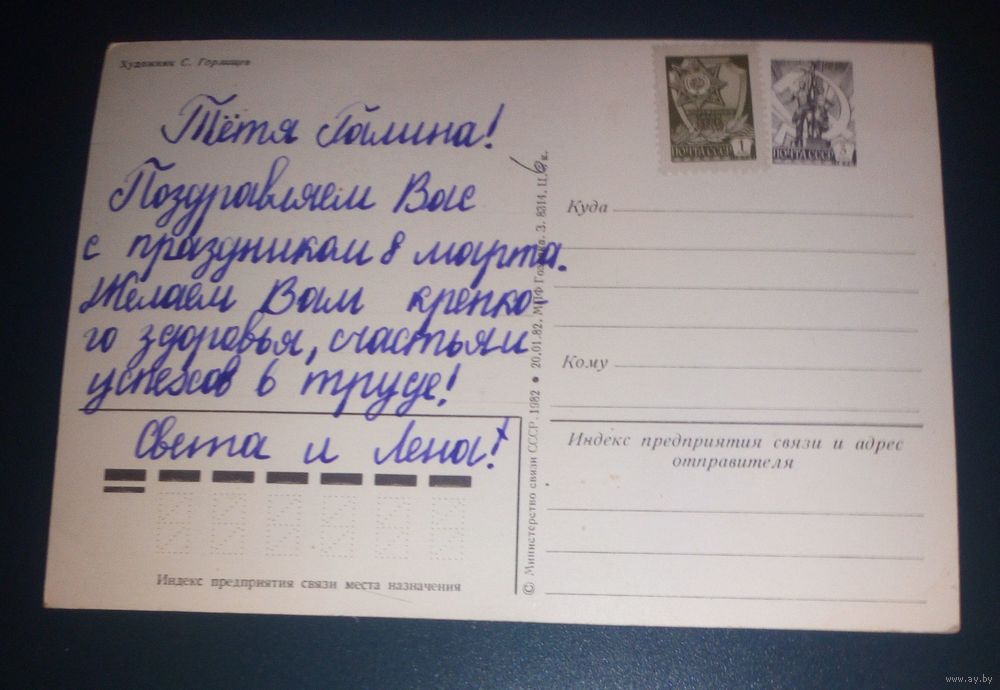 Художник С. Горлищев
Тётя Галина!
Поздравляем Вас
с праздником 8 марта.
Желаем Вам крепко-
го здоровья, счастья и
успехов в труде!
Света и Лена!
Индекс предприятия связи места назначения
© Министерство связи СССР, 1982 • 20.01.82. МПФ Гознака. З. 8314. Ц. 6 к.
ПОЧТА СССР 1
ПОЧТА СССР 3
Куда
Кому
Индекс предприятия связи и адрес
отправителя
www.ay.by